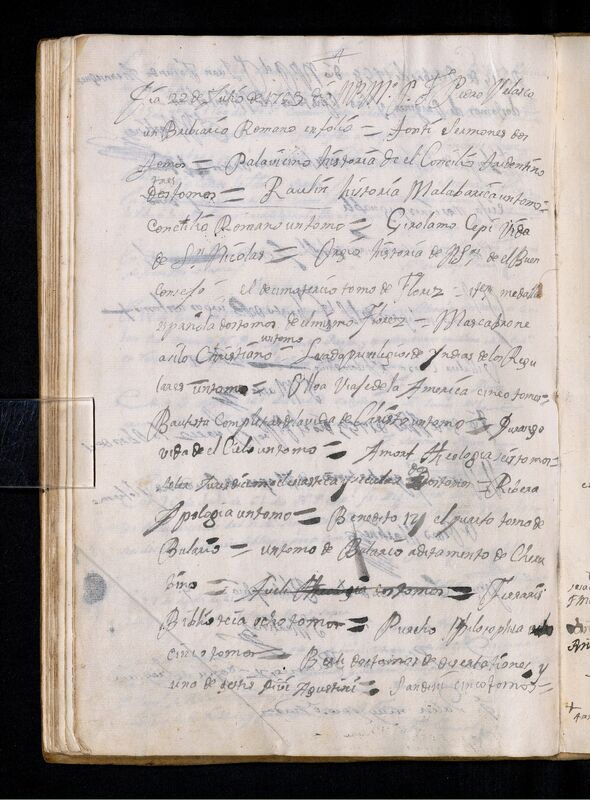 Dia 22 de Julio de 1763 dio N. R. M. P. F. Pedro Velasco
un Breviario Romano en folio = Fonti Sermones dos
tomos = Palavicino historia de el Concilio tridentino
tres
dos tomos = Raulin historia Malabarica un tomo =
Concilio Romano un tomo = Girolamo Cepi Vida
de Sn. Nicolas = Orgio historia de N. Sra. de el Buen
Consejo = el decimatercio tomo de Florez = medallas
española dos tomos de el mismo Florez = Marcabrone
un tomo
asilo Christiano = privilegios de Yndias de los Regu
lares un tomo = Ulloa Viaje de la America cinco tomos =
Bautista Compl de la vida de Christo un tomo = Durango
vida de el Cielo un tomo = Amort theologia tomos =
dos tomos = Ribera
Apologia un tomo = Benedito 14 el quarto tomo de
Bulario = un tomo de Bulario aditamento de Cheru
bino = Fueli Theologia tomos = Ferraris
Biblioteca ocho tomos = Purcho Philosophia
cinco tomos = Berti dos tomos de disertationes y
uno de Agustini = cinco tomos =